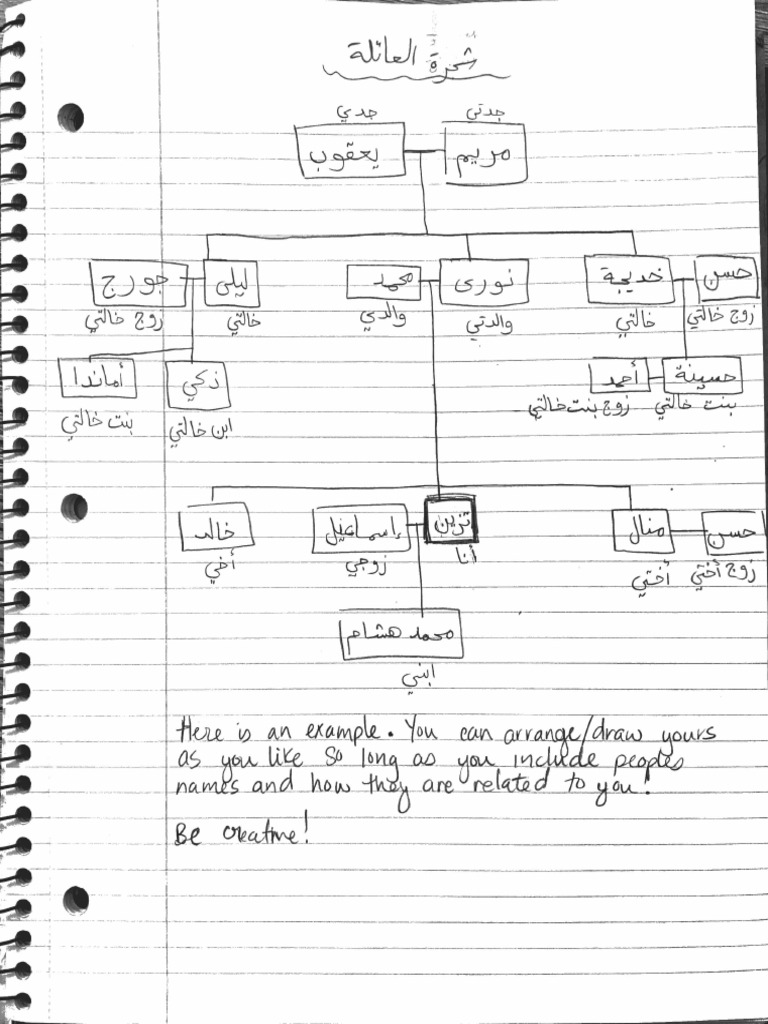 شجرة العائلة
جدتي جدي
مريم يعقوب
حسن خديجة نورى محمد ليلى جورج
زوج خالتي خالتي والدتي والدي خالتي زوج خالتي
حسينة أحمد زكي أماندا
بنت خالتي زوج بنت خالتي ابن خالتي بنت خالتي
حسن منال تزين إسماعيل خالد
زوج أختي أختي أنا زوجي أخي
محمد هشام
ابني
Here is an example. You can arrange/draw yours
as you like so long as you include peoples
names and how they are related to you!
Be creative!